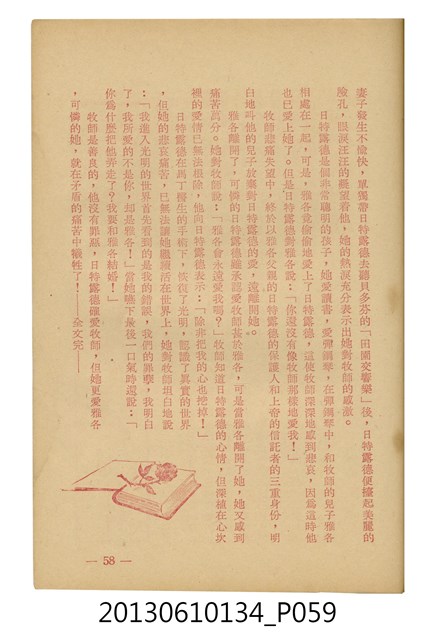 妻子發生不愉快，單獨帶日特露德去聽貝多芬的「田園交響樂」後，日特露德便擡起美麗的
臉孔，眼淚汪汪的凝望着他，她的熱淚充分表示出她對牧師的感激。
日特露德是個非常聰明的孩子，她愛讀書，愛彈鋼琴，在彈鋼琴中，和牧師的兒子雅各
相處在一起，可是，雅各竟偷偷地愛上了日特露德，這使牧師深深地感到悲哀，因爲這時他
也已愛上她了。但是日特露德對雅各說：「你還沒有像牧師那樣地愛我！」
牧師悲痛失望中，終於以雅各父親的日特露德的保護人和上帝的信託者的三重身份，明
白地叫他的兒子放棄對日特露德的愛，遠離開她。
雅各離開了，可憐的日特露德雖承認愛牧師甚於雅各，可是當雅各離開了她，她又感到
痛苦萬分。她對牧師說：「雅各會永遠愛我嗎？」牧師知道日特露德的心情，但深植在心坎
裡的愛情已無法根除，他向日特露德表示：「除非把我的心也挖掉！」
日特露德在馬丁醫生的手術下，恢復了光明，認識了眞實的世界
，但她的悲哀痛苦，已無法讓她繼續活在世界上，她對牧師坦白地說
：「我進入光明的世界首先看到的是我的錯誤，我們的罪孽，我明白
了，我所愛的不是你，却是雅各！」當她嚥下最後一口氣時還說：「
你爲什麼把他弄走了？我要和雅各結婚！」
牧師是善良的，他沒有罪惡，日特露德確愛牧師，但她更愛雅各
，可憐的她，就在矛盾的痛苦中犧牲了！——全文完——
— 58 —
20130610134_P059